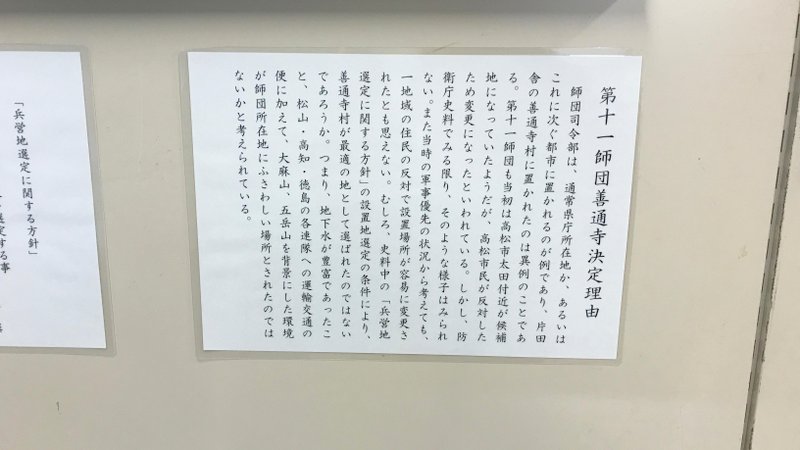 第十一師団善通寺決定理由
師団司令部は、通常県庁所在地か、あるいは
これに次ぐ都市に置かれるのが例であり、片田
舎の善通寺村に置かれたのは異例のことであ
る。第十一師団も当初は高松市太田付近が候補
地になっていたようだが、高松市民が反対した
ため変更になったといわれている。しかし、防
衛庁史料でみる限り、そのような様子はみられ
ない。また当時の軍事優先の状況から考えても、
一地域の住民の反対で設置場所が容易に変更さ
れたとも思えない。むしろ、史料中の「兵営地
選定に関する方針」の設置地選定の条件により、
善通寺村が最適の地として選ばれたのではない
であろうか。つまり、地下水が豊富であったこ
と、松山・高知・徳島の各連隊への運輸交通の
便に加えて、大麻山、五岳山を背景にした環境
が師団所在地にふさわしい場所とされたのでは
ないかと考えられている。
「兵営地選定に関する方針」